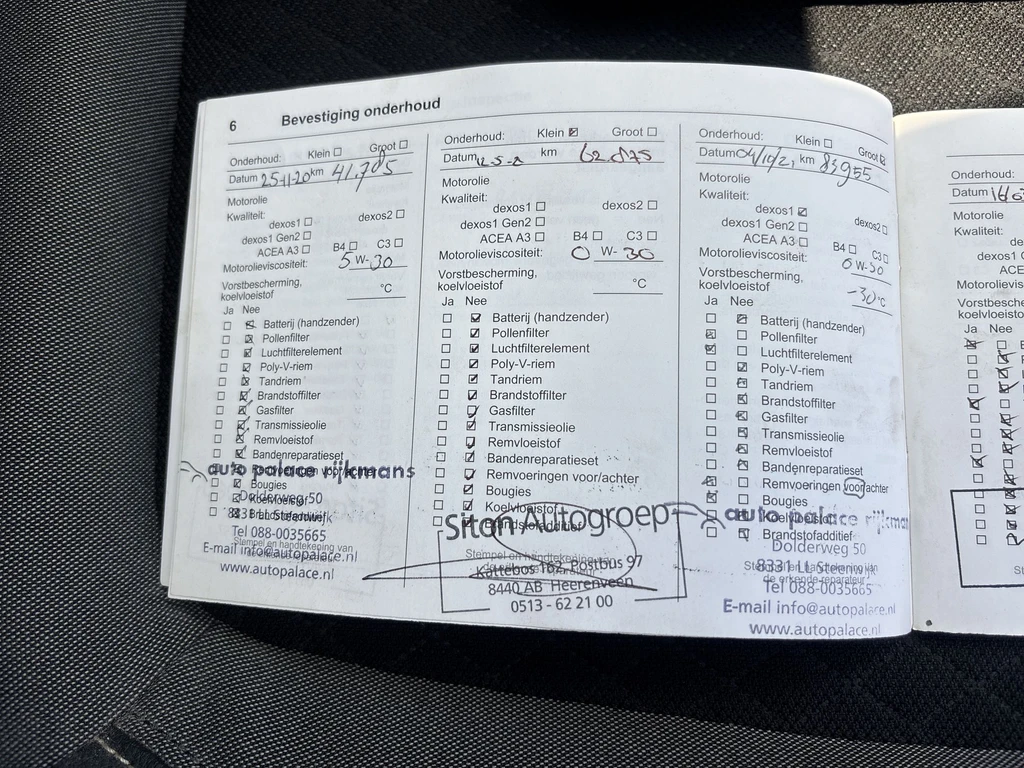 6 Bevestiging onderhoud
Onderhoud: Klein ☐ Groot ☐
Datum 25-11-20 km 41.785
Motorolie
Kwaliteit:
dexos1 ☐ dexos2 ☐
dexos1 Gen2 ☐
ACEA A3 ☐ B4 ☐ C3 ☐
Motorolieviscositeit: 5 W-30
Vorstbescherming,
koelvloeistof °C
Ja Nee
☐ ☒ Batterij (handzender)
☐ ☒ Pollenfilter
☐ ☒ Luchtfilterelement
☐ ☒ Poly-V-riem
☐ ☒ Tandriem
☐ ☒ Brandstoffilter
☐ ☒ Gasfilter
☐ ☒ Transmissieolie
☐ ☒ Remvloeistof
☐ ☒ Bandenreparatieset
auto palace rijkmans
Bougies
Dolderweg 50
Koelvloeistof
8331 LL Steenwijk
Brandstofadditief
Tel 088-0035665
Stempel en handtekening van
E-mail info@autopalace.nl
www.autopalace.nl
Onderhoud: Klein ☑ Groot ☐
Datum km 62.875
Motorolie
Kwaliteit:
dexos1 ☐ dexos2 ☐
dexos1 Gen2 ☐
ACEA A3 ☐ B4 ☐ C3 ☐
Motorolieviscositeit: 0 W-30
Vorstbescherming,
koelvloeistof °C
Ja Nee
☐ ☑ Batterij (handzender)
☐ ☑ Pollenfilter
☐ ☑ Luchtfilterelement
☐ ☑ Poly-V-riem
☐ ☑ Tandriem
☐ ☑ Brandstoffilter
☐ ☑ Gasfilter
☐ ☑ Transmissieolie
☐ ☑ Remvloeistof
☐ ☑ Bandenreparatieset
☐ ☑ Remvoeringen voor/achter
☐ ☑ Bougies
☐ ☑ Koelvloeistof
Siton Autogroep
Brandstofadditief
Stempel en handtekening van
Kattebos 162, Postbus 97
8440 AB Heerenveen
0513 - 62 21 00
Onderhoud: Klein ☐ Groot ☒
Datum 04/10/21 km 83955
Motorolie
Kwaliteit:
dexos1 ☑ dexos2 ☐
dexos1 Gen2 ☐
ACEA A3 ☐ B4 ☐ C3 ☐
Motorolieviscositeit: 0 W-30
Vorstbescherming,
koelvloeistof -30 °C
Ja Nee
☐ ☒ Batterij (handzender)
☒ ☐ Pollenfilter
☒ ☐ Luchtfilterelement
☐ ☒ Poly-V-riem
☐ ☒ Tandriem
☐ ☒ Brandstoffilter
☐ ☒ Gasfilter
☐ ☒ Transmissieolie
☐ ☒ Remvloeistof
☐ ☒ Bandenreparatieset
☒ ☐ Remvoeringen voor/achter
☒ ☐ Bougies
Koelvloeistof
auto palace rijkman
Brandstofadditief
Dolderweg 50
8331 LL Steenwijk
de erkende reparateur
Tel 088-0035665
E-mail info@autopalace.nl
www.autopalace.nl
Onderhoud:
Datum
Motorolie
Kwaliteit:
Ja Nee